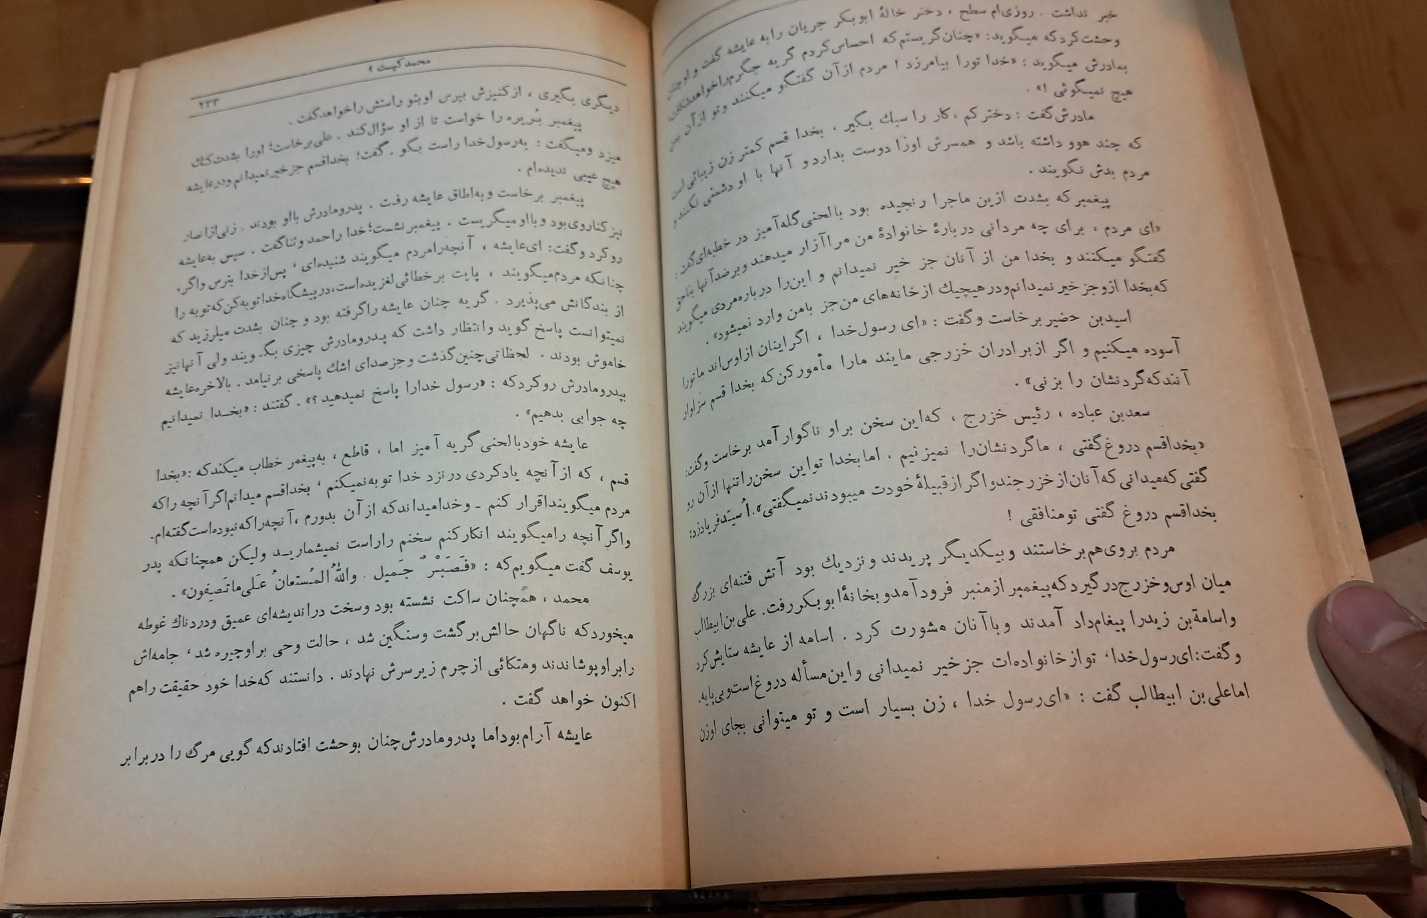 خبر نداشت . روزی‌ام سطح ، دختر خالهٔ ابوبکر جریان را به عایشه گفت و او چنان
وحشت کرد که میگوید: «چنان گریستم که احساس کردم گریه جگرم را خواهد شکافت»
بمادرش میگوید : «خدا تو را بیامرزد ! مردم از آن گفتگو میکنند و تو از آن بمن
هیچ نمیگوئی !» .
مادرش گفت : دخترکم ، کار را سبك بگیر ، بخدا قسم کمتر زن زیبائی است
که چند هوو داشته باشد و همسرش او را دوست بدارد و آنها با او دشمنی نکنند و
مردم بدش نگویند .
پیغمبر که بشدت ازین ماجرا رنجیده بود با لحنی گله‌آمیز در خطبه‌ای گفت :
«ای مردم ، برای چه مردانی دربارهٔ خانوادهٔ من مرا آزار میدهند و برضد آنها بناحق
گفتگو میکنند و بخدا من از آنان جز خیر نمیدانم و این را درباره مردی میگویند
که بخدا ازو جز خیر نمیدانم و در هیچیك از خانه‌های من جز با من وارد نمیشود» .
اسید بن حضیر برخاست و گفت : «ای رسول خدا ، اگر اینان از اوس‌اند ما تو را
آسوده میکنیم و اگر از برادران خزرجی مایند ما را مأمور کن که بخدا قسم سزاوار
آنند که گردنشان را بزنی» .
سعدبن عباده ، رئیس خزرج ، که این سخن بر او ناگوار آمد برخاست و گفت:
«بخدا قسم دروغ گفتی ، ما گردنشان را نمیزنیم . اما بخدا تو این سخن را تنها از آن رو
گفتی که میدانی که آنان از خزرجند و اگر از قبیلهٔ خودت میبودند نمیگفتی». اُسید فریاد زد:
بخدا قسم دروغ گفتی تو منافقی !
مردم بروی هم برخاستند و بیکدیگر پریدند و نزدیك بود آتش فتنه‌ای بزرگ
میان اوس و خزرج درگیرد که پیغمبر از منبر فرود آمد و بخانهٔ ابوبکر رفت. علی بن ابیطالب
و اسامة بن زید را پیغام داد آمدند و با آنان مشورت کرد . اسامه از عایشه ستایش کرد
و گفت: ای رسول خدا، تو از خانواده‌ات جز خیر نمیدانی و این مسأله دروغ است و بی‌پایه.
اما علی بن ابیطالب گفت : «ای رسول خدا ، زن بسیار است و تو میتوانی بجای او زن
محمد کیست ؟
۲۳۳
دیگری بگیری ، از کنیزش بپرس او بتو راستش را خواهد گفت .
پیغمبر بُریره را خواست تا از او سؤال کند . علی برخاست؛ او را بشدت کتك
میزد و میگفت : به رسول خدا راست بگو . گفت؛ بخدا قسم جز خیر نمیدانم و در عایشه
هیچ عیبی ندیده‌ام .
پیغمبر برخاست و به اطاق عایشه رفت . پدر و مادرش با او بودند . زنی از انصار
نیز کنار وی بود و با او میگریست . پیغمبر نشست؛ خدا را حمد و ثنا گفت . سپس به عایشه
رو کرد و گفت: ای عایشه ، آنچه را مردم میگویند شنیده‌ای ، پس از خدا بترس و اگر،
چنانکه مردم میگویند ، پایت بر خطائی لغزیده است، در پیشگاه خدا توبه کن که توبه را
از بندگانش می‌پذیرد . گریه چنان عایشه را گرفته بود و چنان بشدت میلرزید که
نمیتوانست پاسخ گوید و انتظار داشت که پدر و مادرش چیزی بگویند ولی آنها نیز
خاموش بودند . لحظاتی چنین گذشت و جز صدای اشك پاسخی برنیامد . بالاخره عایشه
بپدر و مادرش رو کرد که : «رسول خدا را پاسخ نمیدهید ؟» . گفتند : «بخدا نمیدانیم
چه جوابی بدهیم» .
عایشه خود با لحنی گریه آمیز اما ، قاطع ، به پیغمبر خطاب میکند که :«بخدا
قسم ، که از آنچه یاد کردی در نزد خدا توبه نمیکنم ، بخدا قسم میدانم اگر آنچه را که
مردم میگویند اقرار کنم ـ و خدا میداند که از آن بدورم ، آنچه را که نبوده است گفته‌ام.
و اگر آنچه را میگویند انکار کنم سخنم را راست نمیشمارید و لیکن همچنانکه پدر
یوسف گفت میگویم که : «فَصَبْرٌ جَمیل . واللهُ المُستعانُ عَلی ما تَصِفون» .
محمد ، همچنان ساکت نشسته بود و سخت در اندیشه‌ای عمیق و دردناك غوطه
میخورد که ناگهان حالش برگشت و سنگین شد ، حالت وحی بر او چیره شد ، جامه‌اش
را بر او پوشاندند و متکائی از چرم زیر سرش نهادند . دانستند که خدا خود حقیقت را هم
اکنون خواهد گفت .
عایشه آرام بود اما پدر و مادرش چنان بوحشت افتادند که گویی مرگ را در برابر